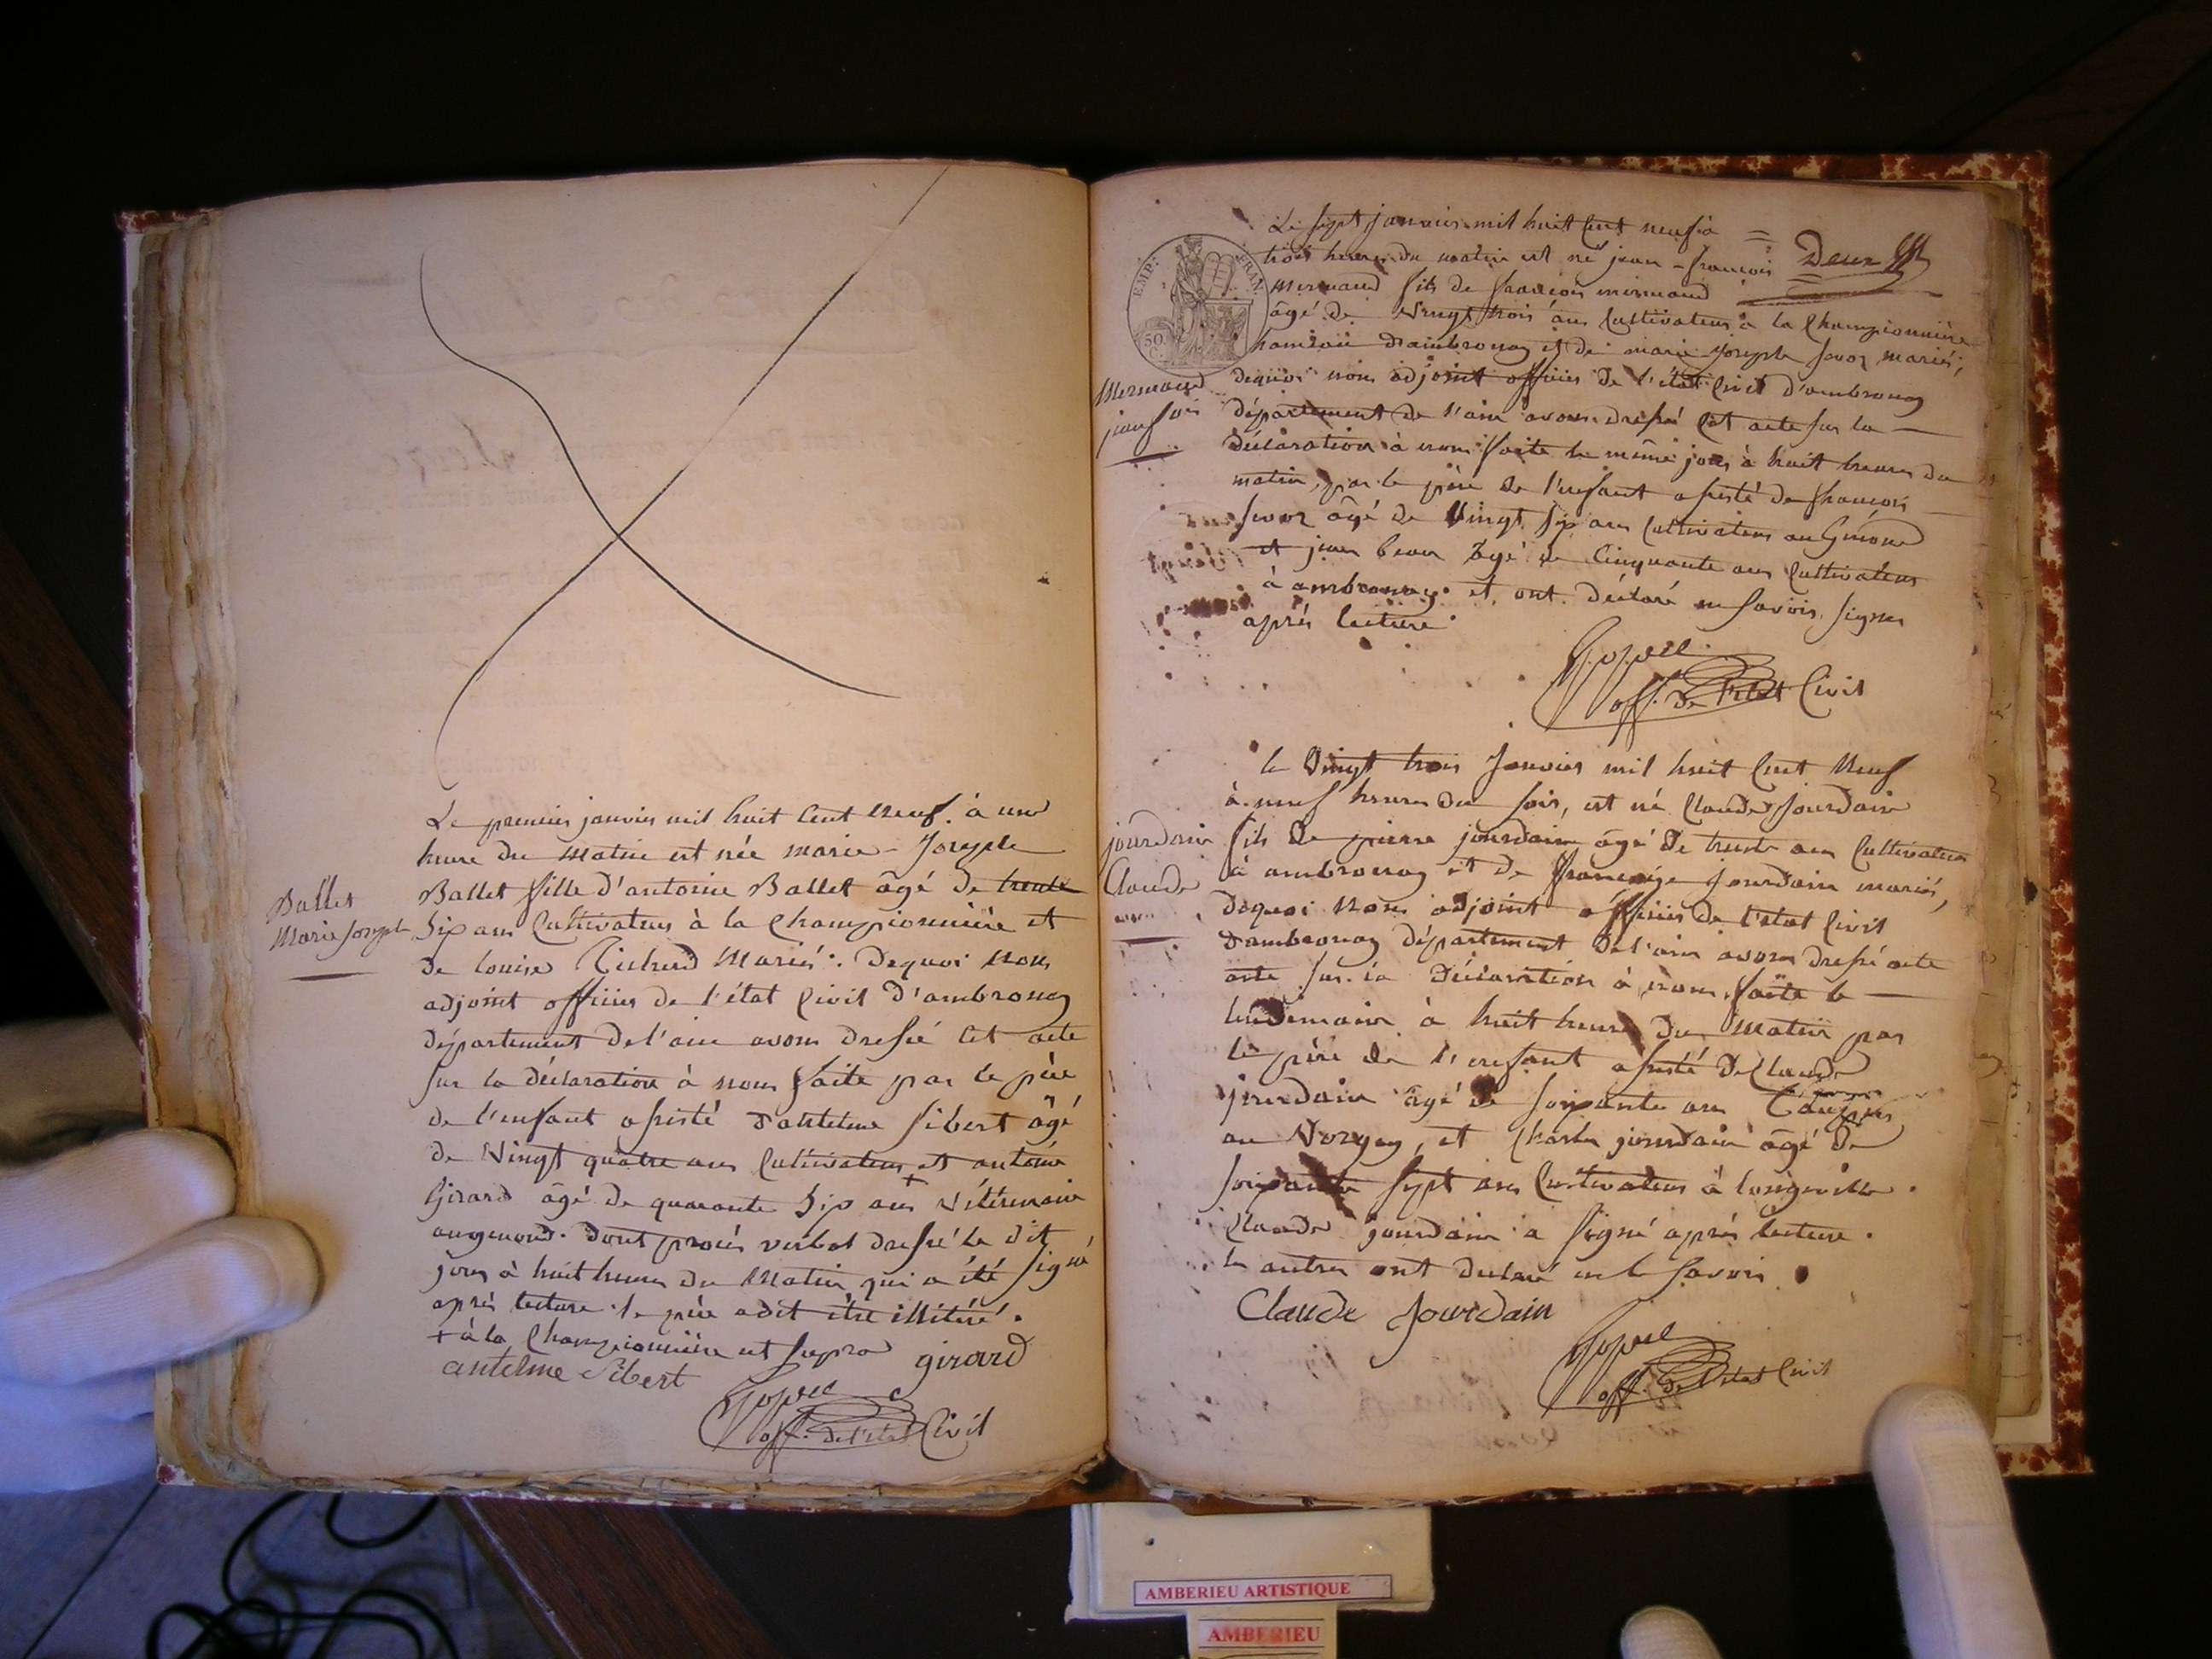 Le premier janvier mil huit cent neuf. à une
heure du matin est née marie-Josephe
Ballet fille d'antoine Ballet âgé de trente
Ballet
Marie Joseph
six ans Cultivateur à la Championnière et
de louise mariés. Dequoi nous
adjoint officier de l'état Civil d'ambronay
département de l'ain avons dressé cet acte
sur la déclaration à nous faite par le père
de l'enfant assisté d'antelme sibert âgé
de Vingt quatre ans Cultivateur + et antoine
Girard âgé de quarante six ans Vétérinaire
augnoud. dont procès verbal dressé le dit
jour à huit heures du Matin, qui a été signé
après lecture. le père a dit être illitéré.
+ à la Championnière ut supra
girard
antelme Sibert
off. de l'état Civil
Le sept janvier mil huit cent neuf à =
trois heures du matin est né jean-francois
Deux
mermand fils de francois mermand
âgé de Vingt trois ans Cultivateur à la Championnière
EMP. FRAN.
50 C.
hameau d'ambronay et de marie-josephe savoz mariés;
Mermand
jean fois
dequoi nous adjoint officier de l'état Civil d'ambronay
département de l'ain avons dressé cet acte sur la
déclaration à nous faite le même jour à huit heures du
matin, par le père de l'enfant assisté de francois
savoz âgé de Vingt six ans Cultivateur au
et jean âgé de Cinquante ans Cultivateur
à ambronay. et ont déclaré ne savoir signer
après lecture.
off. de l'état Civil
le Vingt trois Janvier mil huit Cent Neuf
à neuf heures du soir, est né Claude Jourdain
jourdain
Claude
fils de pierre jourdain âgé de trente ans Cultivateur
à ambronay et de Jourdain mariés,
Dequoi Nous adjoint officier de l'état Civil
d'ambronay département de l'ain avons dressé acte
acte sur la Déclaration à nous faite le
lendemain à huit heures du Matin par
le père de l'enfant assisté de Claude
jourdain âgé de soixante ans
au et Charles jourdain âgé de
soixante sept ans Cultivateur à longeville.
Claude jourdain a signé après lecture.
les autres ont declaré ne le savoir.
Claude Jourdain
off. de l'état Civil
AMBERIEU ARTISTIQUE
AMBERIEU